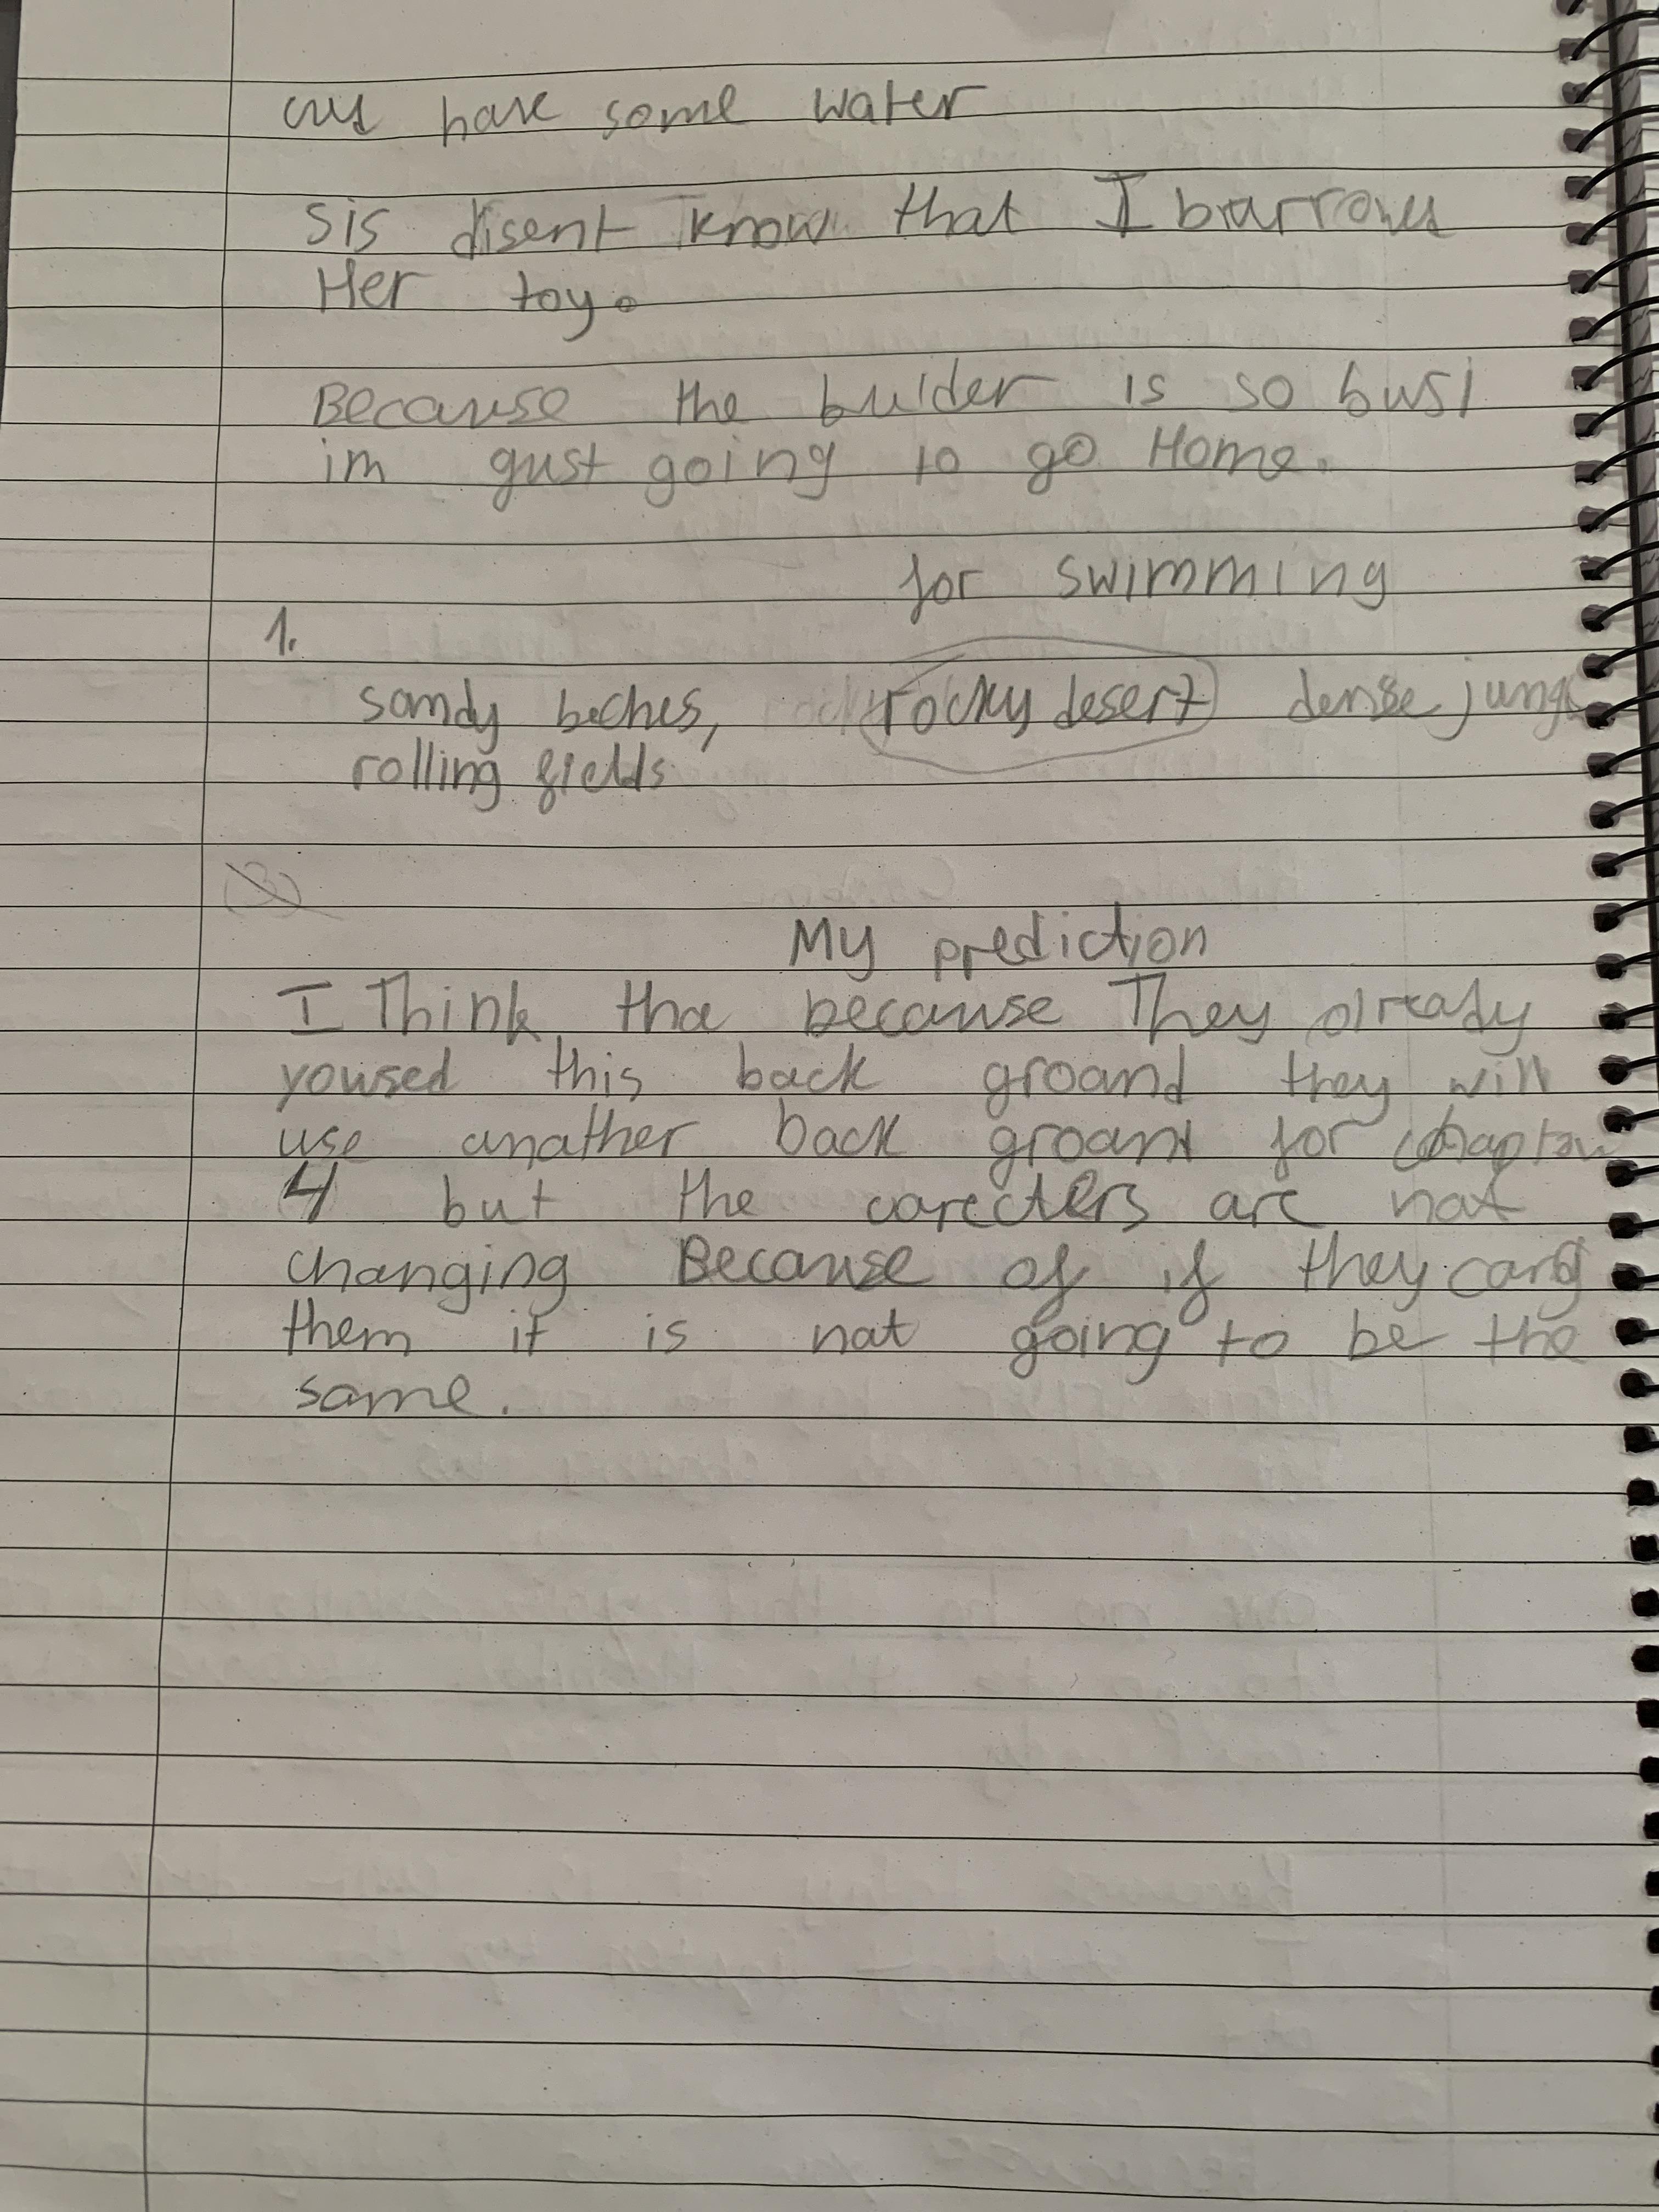 and have some water
sis disent know that I barrowed
Her toy.
Because the buider is so busi
im gust going to go Home.
for swimming
1.
sandy beches, rocky desert dense jungle
rolling fields
My prediction
I Think tha because They already
yowsed this back groand they will
use anather back groant for
4 but the carecters are not
changing Because of if they
them it is not going to be the
same.